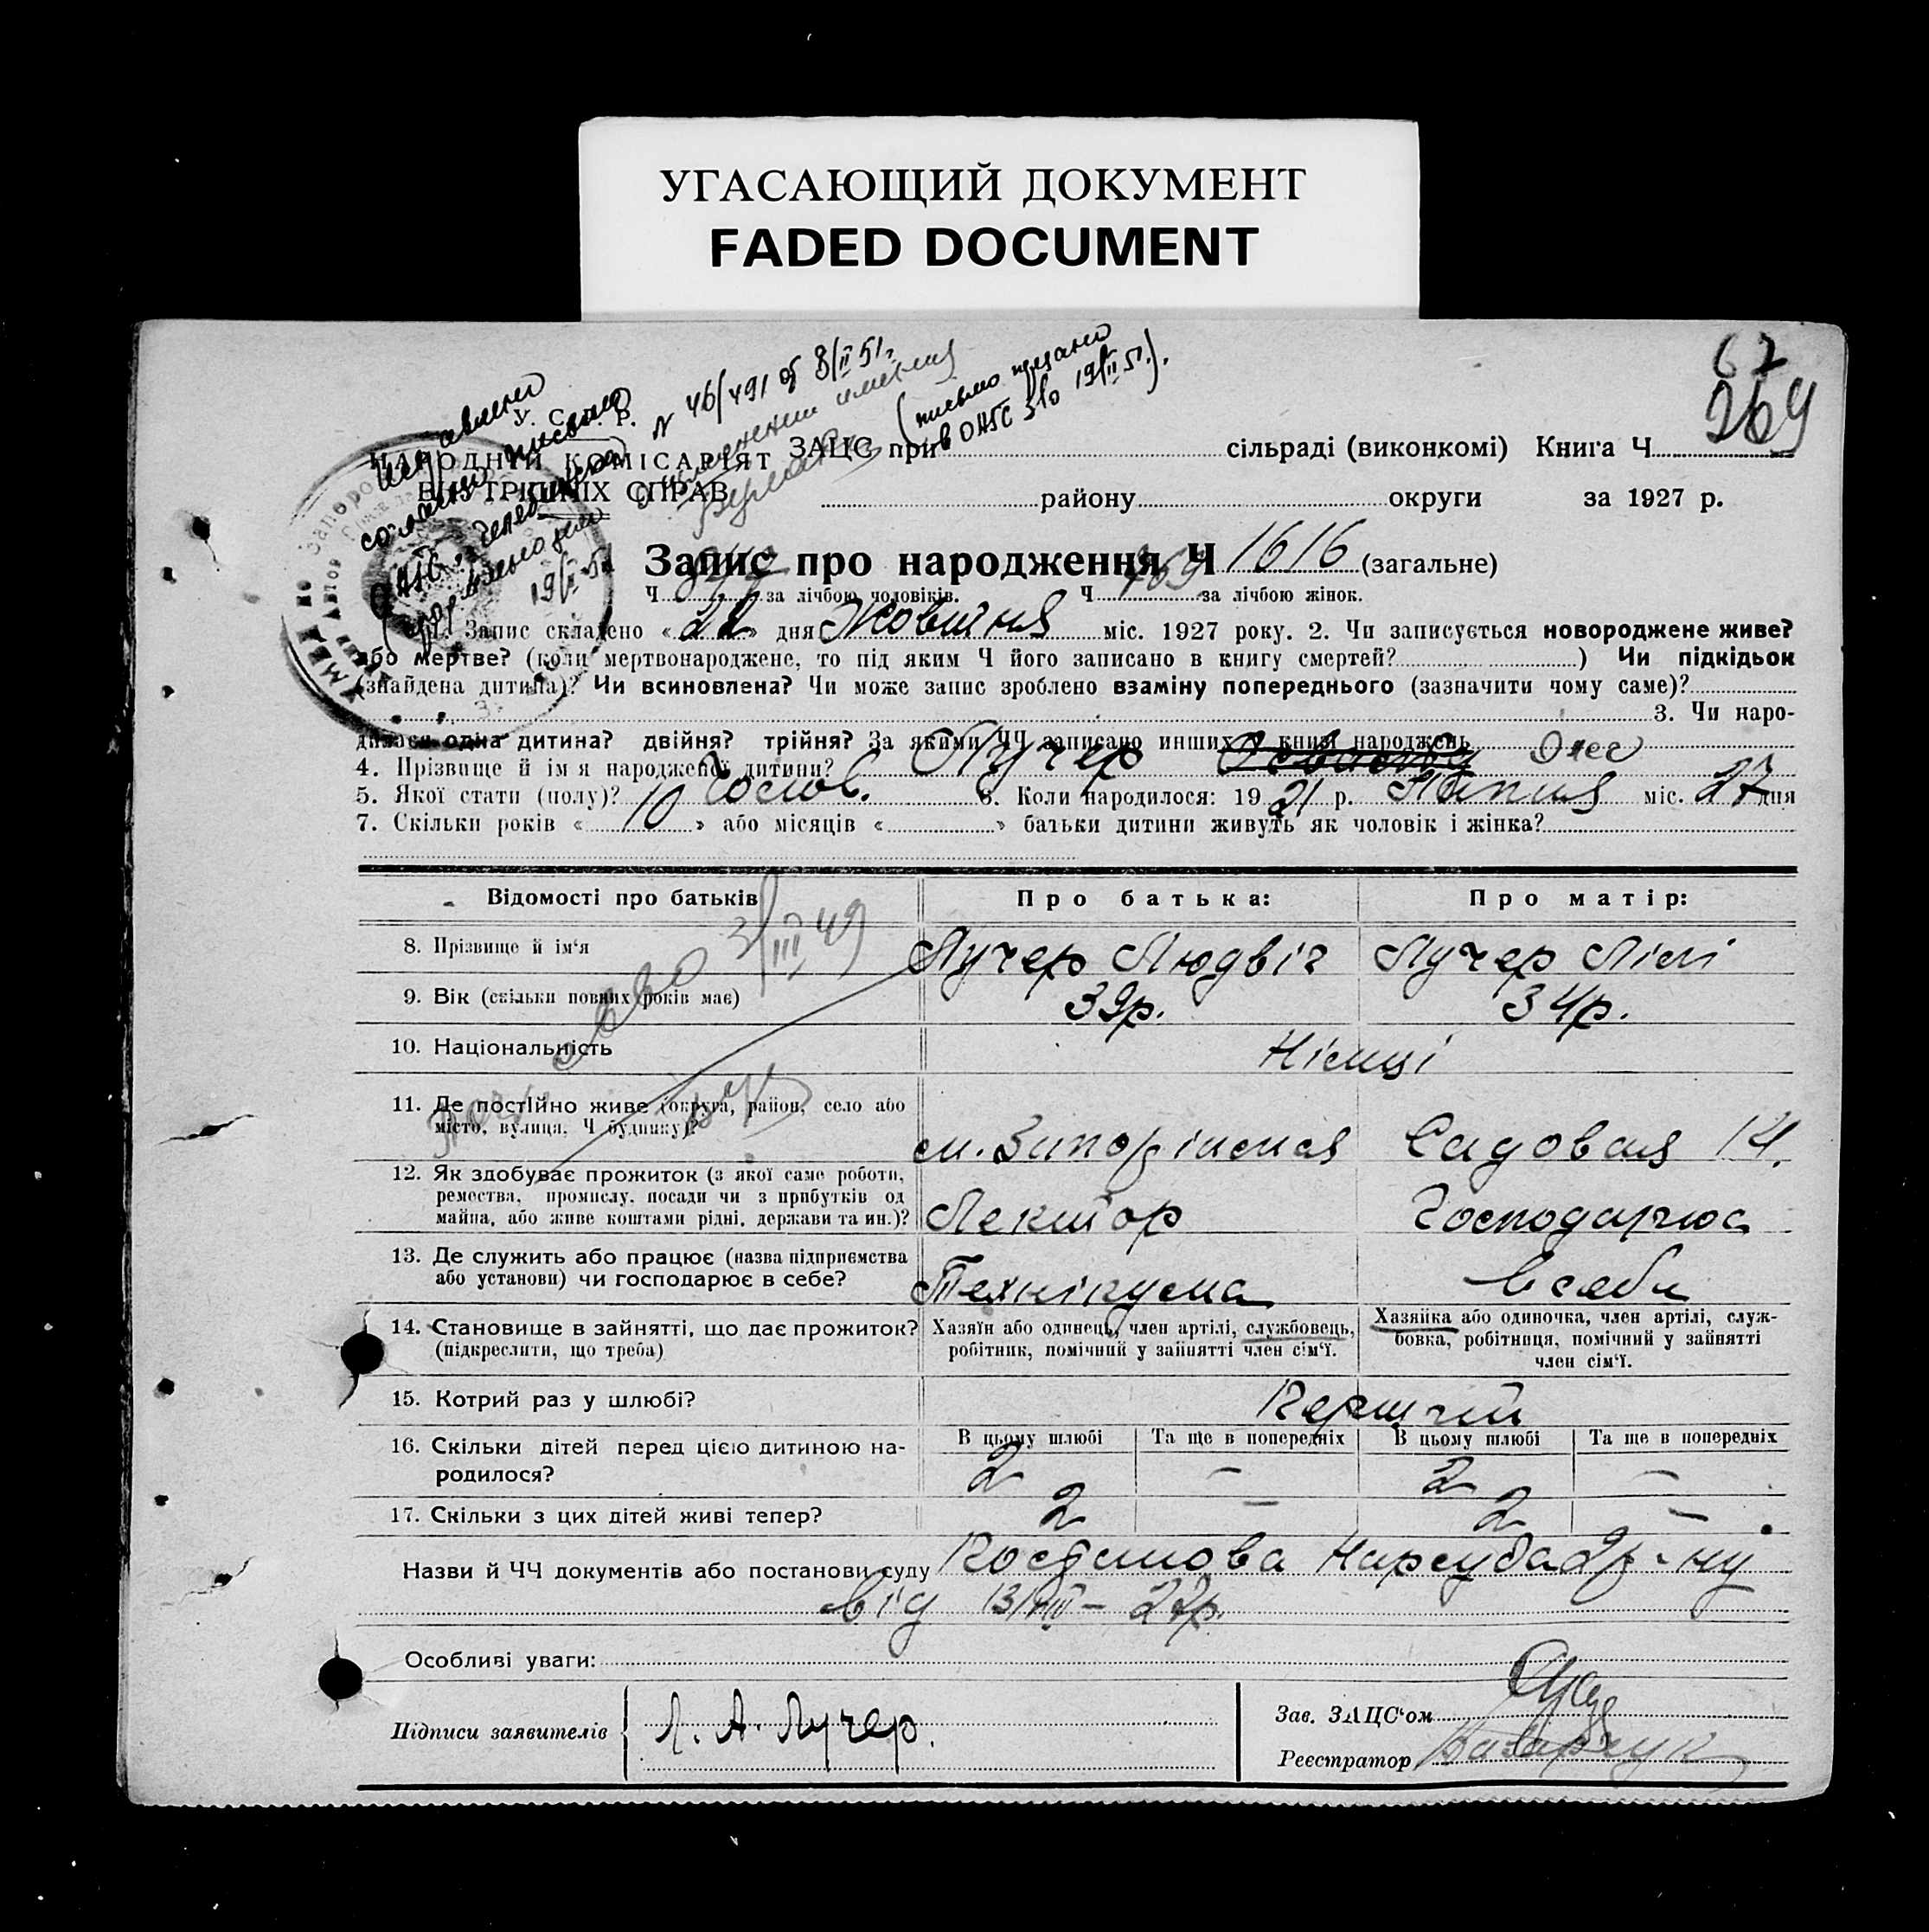 УГАСАЮЩИЙ ДОКУМЕНТ
FADED DOCUMENT
67
269
N 46/491 от 8/II 51г.
(письмо передано
в ОАГС З/о 19/II 51.).
19/II 51
У. С. Р. Р.
НАРОДНІЙ КОМІСАРІЯТ
ВНУТРІШНІХ СПРАВ
ЗАЦС при сільраді (виконкомі) Книга Ч
району округи за 1927 р.
Запис про народження Ч 1616 (загальне)
Ч 847 за лічбою чоловіків. Ч 769 за лічбою жінок.
1. Запис складено « 22 » дня Жовтня міс. 1927 року. 2. Чи записується новороджене живе?
або мертве? (коли мертвонароджене, то під яким Ч його записано в книгу смертей? ) Чи підкідьок
(знайдена дитина)? Чи всиновлена? Чи може запис зроблено взаміну попереднього (зазначити чому саме)?
3. Чи наро-
дилася одна дитина? двійня? трійня? За якими ЧЧ записано инших у книзі народжень
4. Прізвище й ім'я народженої дитини? Лучер Олег
5. Якої стати (полу)? Чолов. 6. Коли народилося: 1921 р. Липня міс. 27 дня
7. Скільки років « 10 » або місяців « » батьки дитини живуть як чоловік і жінка?
Відомості про батьків Про батька: Про матір:
3/III 49
8. Прізвище й ім'я Лучер Людвіг Лучер Лілі
9. Вік (скільки повних років має) 39р. 34р.
10. Національність Німці
11. Де постійно живе (округа, район, село або
місто, вулиця, Ч будинку)? м. Запоріжжя Садовая 14.
12. Як здобуває прожиток (з якої саме роботи,
ремества, промислу, посади чи з прибутків од
майна, або живе коштами рідні, держави та ин.)? Лектор Господарює
13. Де служить або працює (назва підприємства
або установи) чи господарює в себе? Технікума в себе
14. Становище в зайнятті, що дає прожиток?
(підкреслити, що треба)
Хазяїн або одинець, член артілі, службовець,
робітник, помічний у зайнятті член сім'ї.
Хазяйка або одиночка, член артілі, служ-
бовка, робітниця, помічний у зайнятті
член сім'ї.
15. Котрий раз у шлюбі? Перший
В цьому шлюбі Та ще в попередніх В цьому шлюбі Та ще в попередніх
16. Скільки дітей перед цією дитиною на-
родилося? 2 – 2 –
17. Скільки з цих дітей живі тепер? 2 – 2 –
Назви й ЧЧ документів або постанови суду Постанова Нарсуда
від 13/VIII – 27р.
Особливі уваги:
Підписи заявителів Л. А. Лучер.
Зав. ЗАЦС'ом
Реєстратор